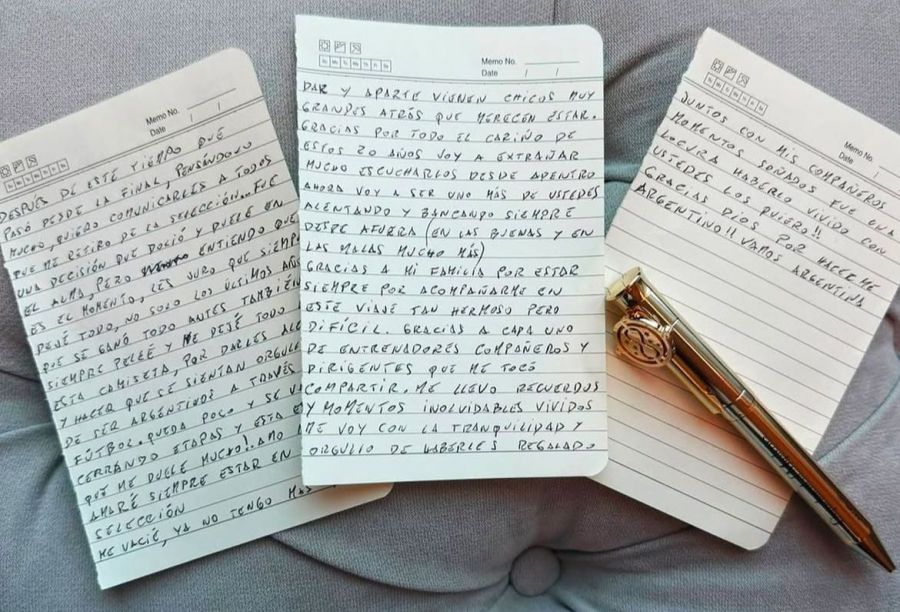 Memo No.
Date / /
DESPUÉS DE ESTE TIEMPO QUE
PASÓ DESDE LA FINAL, PENSÁNDOLO
MUCHO, QUIERO COMUNICARLES A TODOS
QUE ME RETIRO DE LA SELECCIÓN... FUE
UNA DECISIÓN QUE DOLIÓ Y DUELE EN
EL ALMA, PERO ENTIENDO QUE
ES EL MOMENTO, LES JURO QUE SIEMP
DEJÉ TODO, NO SOLO LOS ÚLTIMOS AÑOS
QUE SE GANÓ TODO ANTES TAMBIÉN
SIEMPRE PELEÉ Y ME DEJÉ TODO
ESTA CAMISETA, POR DARLES ALE
Y HACER QUE SE SIENTAN ORGULL
DE SER ARGENTINOS A TRAVÉS
FÚTBOL. QUEDA POCO Y SE V
CERRANDO ETAPAS Y ESTA E
QUE ME DUELE MUCHO!!. AMO
AMARÉ SIEMPRE ESTAR EN
SELECCIÓN
ME VACIÉ, YA NO TENGO MÁS
Memo No.
Date / /
DAR Y APARTE VIENEN CHICOS MUY
GRANDES ATRÁS QUE MERECEN ESTAR.
GRACIAS POR TODO EL CARIÑO DE
ESTOS 20 AÑOS VOY A EXTRAÑAR
MUCHO ESCUCHARLOS DESDE ADENTRO
AHORA VOY A SER UNO MÁS DE USTEDES
ALENTANDO Y BANCANDO SIEMPRE
DESDE AFUERA (EN LAS BUENAS Y EN
LAS MALAS MUCHO MÁS)
GRACIAS A MI FAMILIA POR ESTAR
SIEMPRE POR ACOMPAÑARME EN
ESTE VIAJE TAN HERMOSO PERO
DIFÍCIL. GRACIAS A CADA UNO
DE ENTRENADORES COMPAÑEROS Y
DIRIGENTES QUE ME TOCÓ
COMPARTIR. ME LLEVO RECUERDOS
Y MOMENTOS INOLVIDABLES VIVIDOS
ME VOY CON LA TRANQUILIDAD Y
ORGULLO DE HABERLES REGALADO
Memo No.
Date / /
JUNTOS CON MIS COMPAÑEROS
MOMENTOS SOÑADOS FUE UNA
LOCURA HABERLO VIVIDO CON
USTEDES LOS QUIERO!!
GRACIAS DIOS POR HACERME
ARGENTINO!! VAMOS ARGENTINA